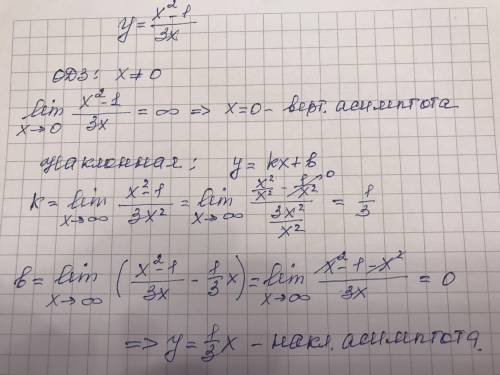 y = (x² - 1)/(3x)
ОДЗ: x ≠ 0
lim x→0 (x² - 1)/(3x) = ∞ => x = 0 - верт. асимптота
Наклонная: y = kx + b
k = lim x→∞ (x² - 1)/(3x²) = lim x→∞ (x²/x² - 1/x² → 0)/(3x²/x²) = 1/3
b = lim x→∞ ((x² - 1)/(3x) - 1/3 x) = lim x→∞ (x² - 1 - x²)/(3x) = 0
=> y = 1/3 x - накл. асимптота.